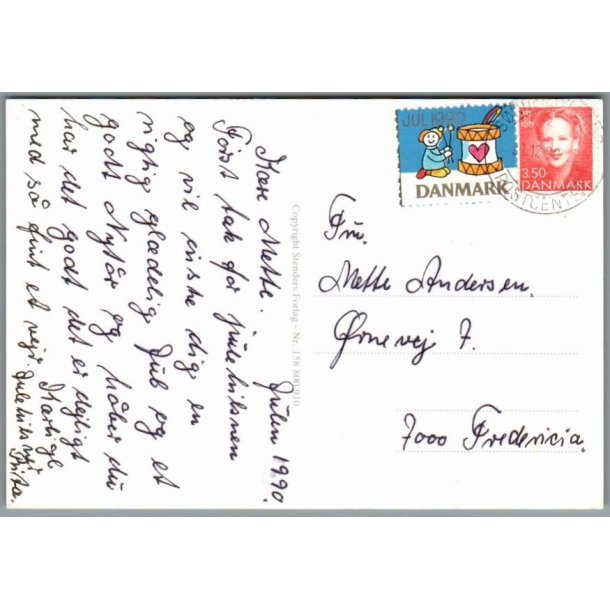 Julen 1990.
Kære Mette.
Først tak for julehilsnen
og vil ønske dig en
rigtig glædelig Jul og et
godt Nytår og håber du
har det godt det er dejligt
med så fint et vejr.
Kærlige
Julehilsner
Copyright Stenders Forlag - Nr. 158 800 010
JUL 1990
DANMARK
3.50
DANMARK
POSTCENTER
Fru.
Mette Andersen.
Ørnevej 7.
7000 Fredericia.